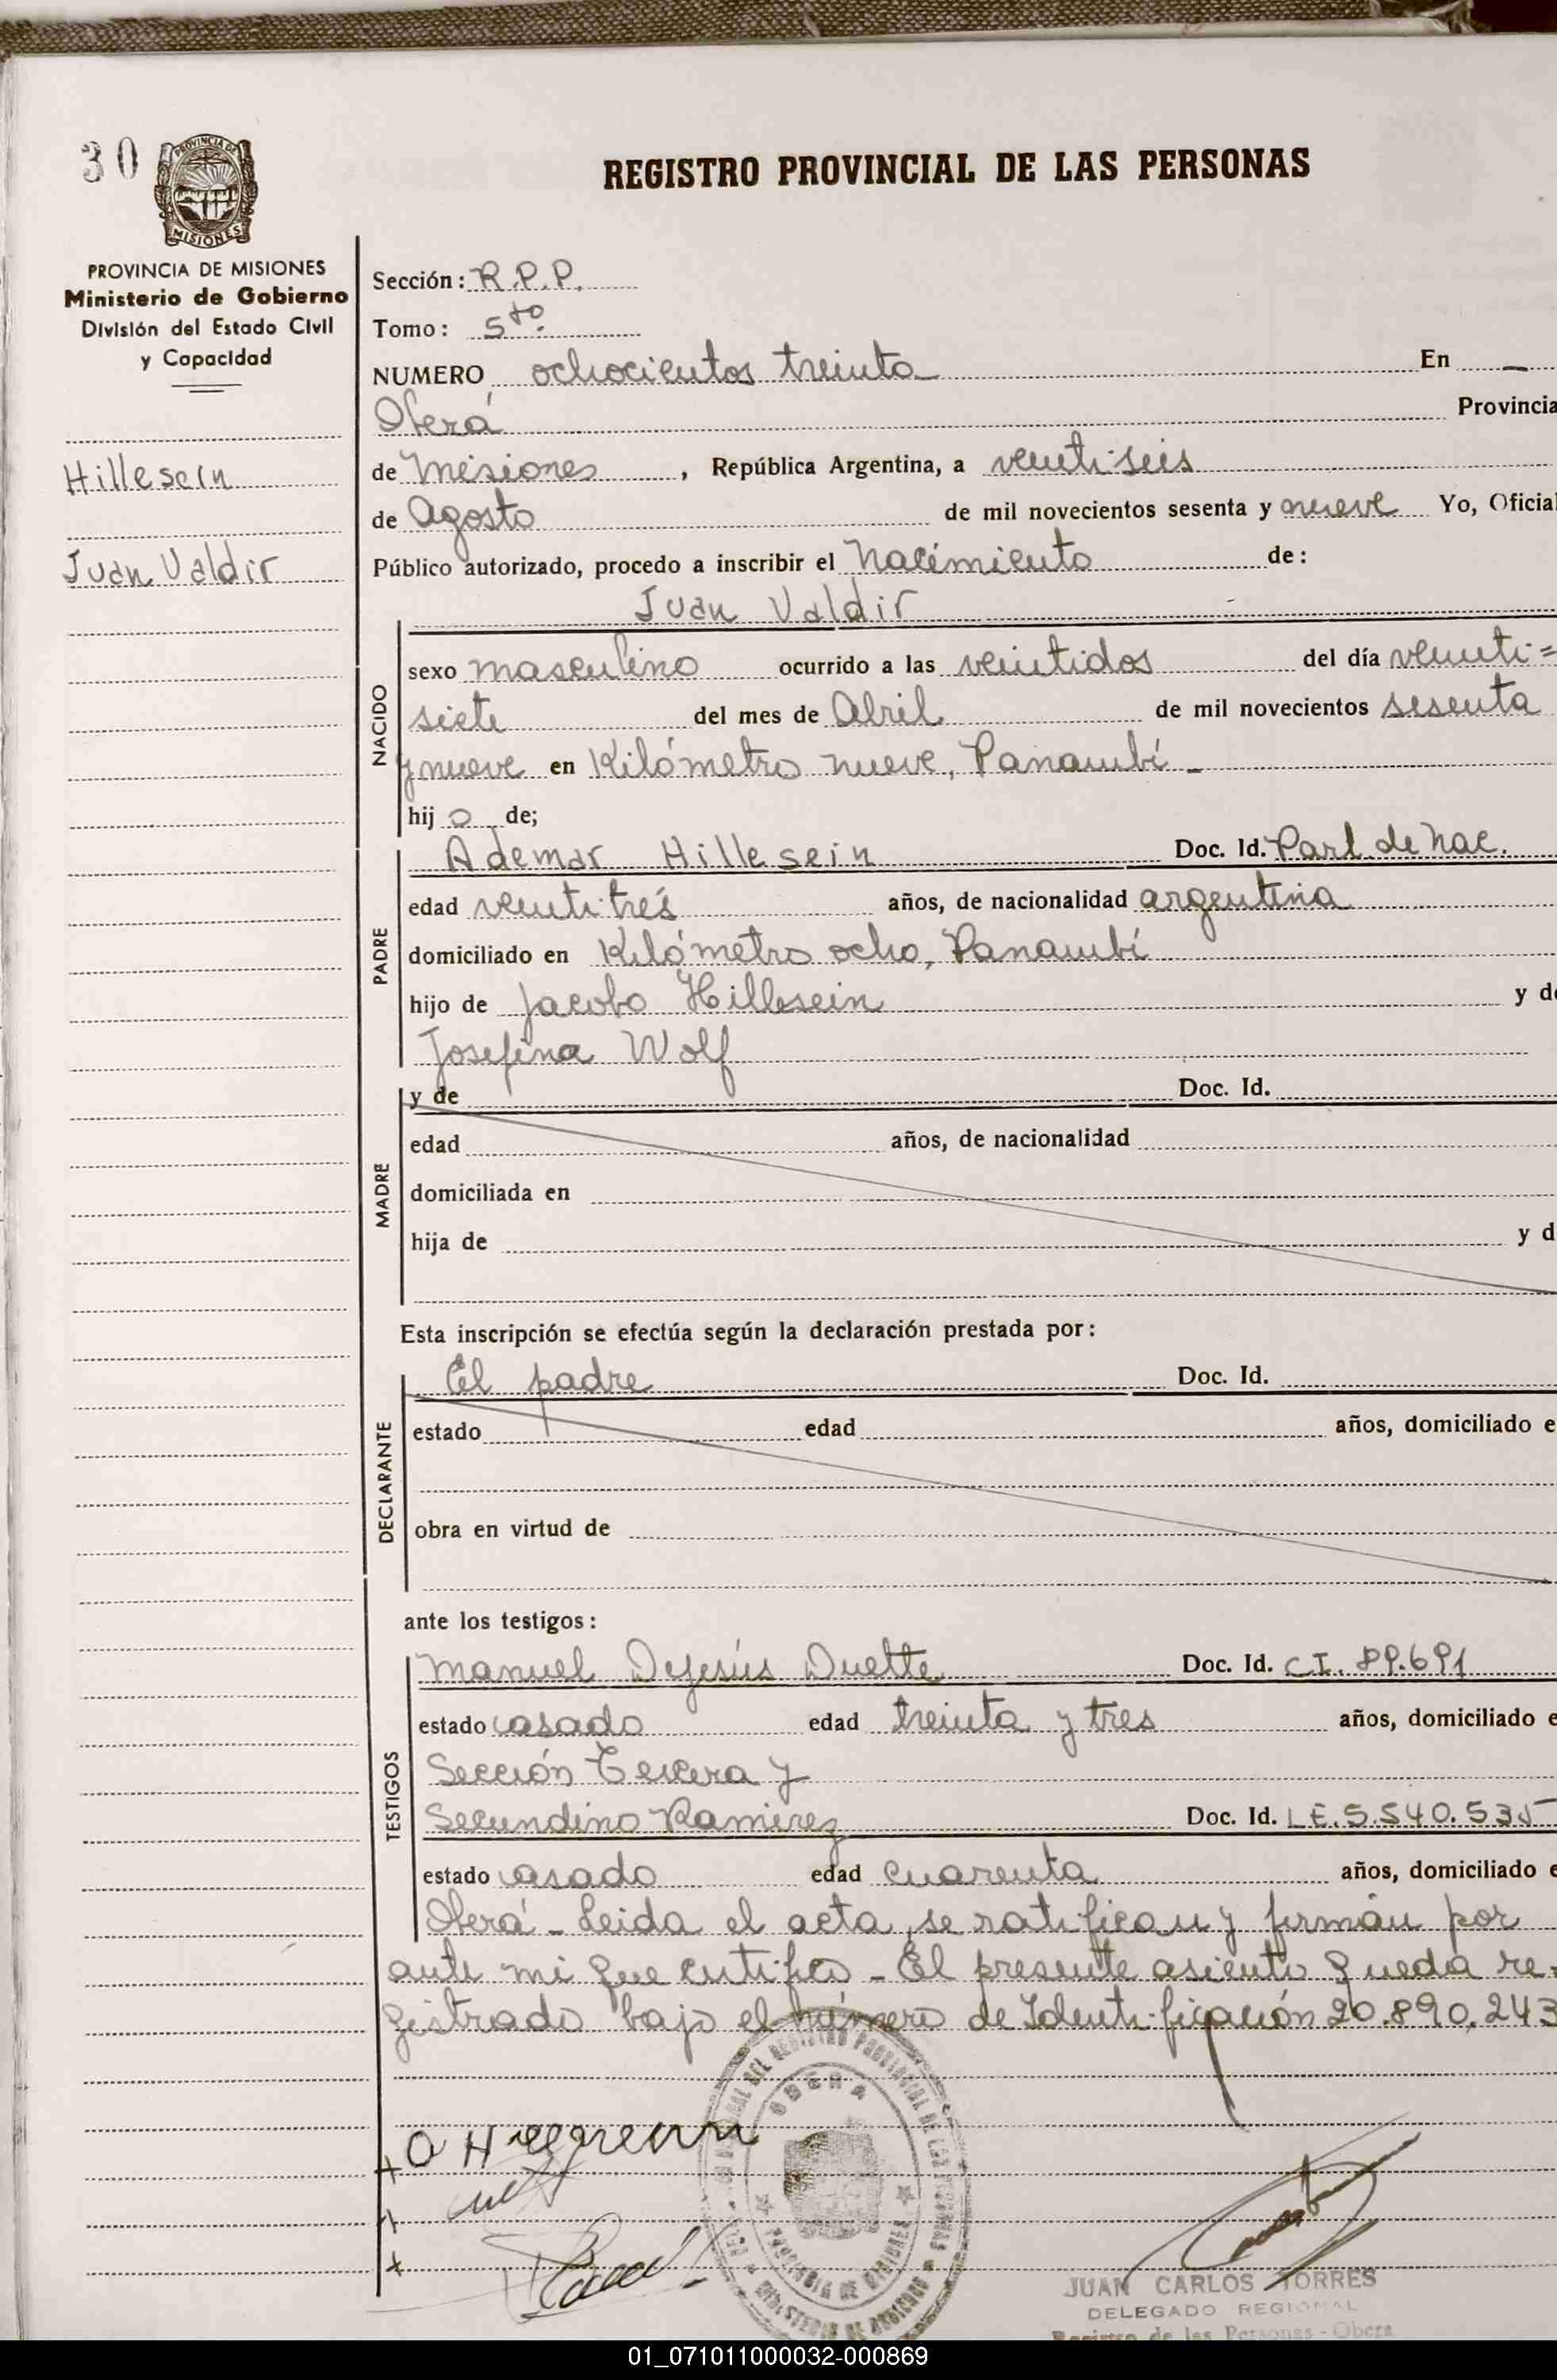 30
PROVINCIA DE MISIONES
MISIONES
PROVINCIA DE MISIONES
Ministerio de Gobierno
División del Estado Civil
y Capacidad
Hillesein
Juan Valdir
REGISTRO PROVINCIAL DE LAS PERSONAS
Sección: R.P.P.
Tomo: 5to.
NUMERO ochocientos treinta En —
Oberá Provincia
de Misiones, República Argentina, a veinti seis
de Agosto de mil novecientos sesenta y nueve Yo, Oficial
Público autorizado, procedo a inscribir el Nacimiento de:
Juan Valdir
NACIDO
sexo masculino ocurrido a las veintidos del día veinti=
siete del mes de Abril de mil novecientos sesenta
y nueve en Kilómetro nueve, Panambí -
hij o de;
PADRE
Ademar Hillesein Doc. Id. Part. de Nac.
edad veinti trés años, de nacionalidad argentina
domiciliado en Kilómetro ocho, Panambí
hijo de Jacobo Hillesein y de
Josefina Wolf
MADRE
y de Doc. Id.
edad años, de nacionalidad
domiciliada en
hija de y d
Esta inscripción se efectúa según la declaración prestada por:
DECLARANTE
El padre Doc. Id.
estado edad años, domiciliado e
obra en virtud de
ante los testigos:
TESTIGOS
Manuel Dejesús Duette Doc. Id. C.I. 89.691
estado casado edad treinta y tres años, domiciliado e
Sección Tercera y
Secundino Ramirez Doc. Id. L.E. 5.540.535
estado casado edad cuarenta años, domiciliado e
Oberá - Leida el acta, se ratifican y firmán por
ante mi que certifico - El presente asiento queda re-
gistrado bajo el número de Identificación 20.890.243
OBERA
PROVINCIA DE MISIONES
MINISTERIO DE GOBIERNO
JUAN CARLOS TORRES
DELEGADO REGIONAL
Registro de las Personas - Obera
01_071011000032-000869